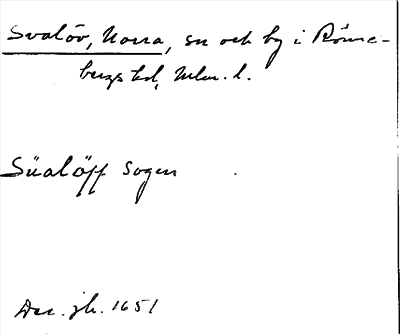 Svalöv, Norra, sn och by i Rönne-
bergs hd, Mlm. l.
Süalöff sogen
Dec. jb. 1651